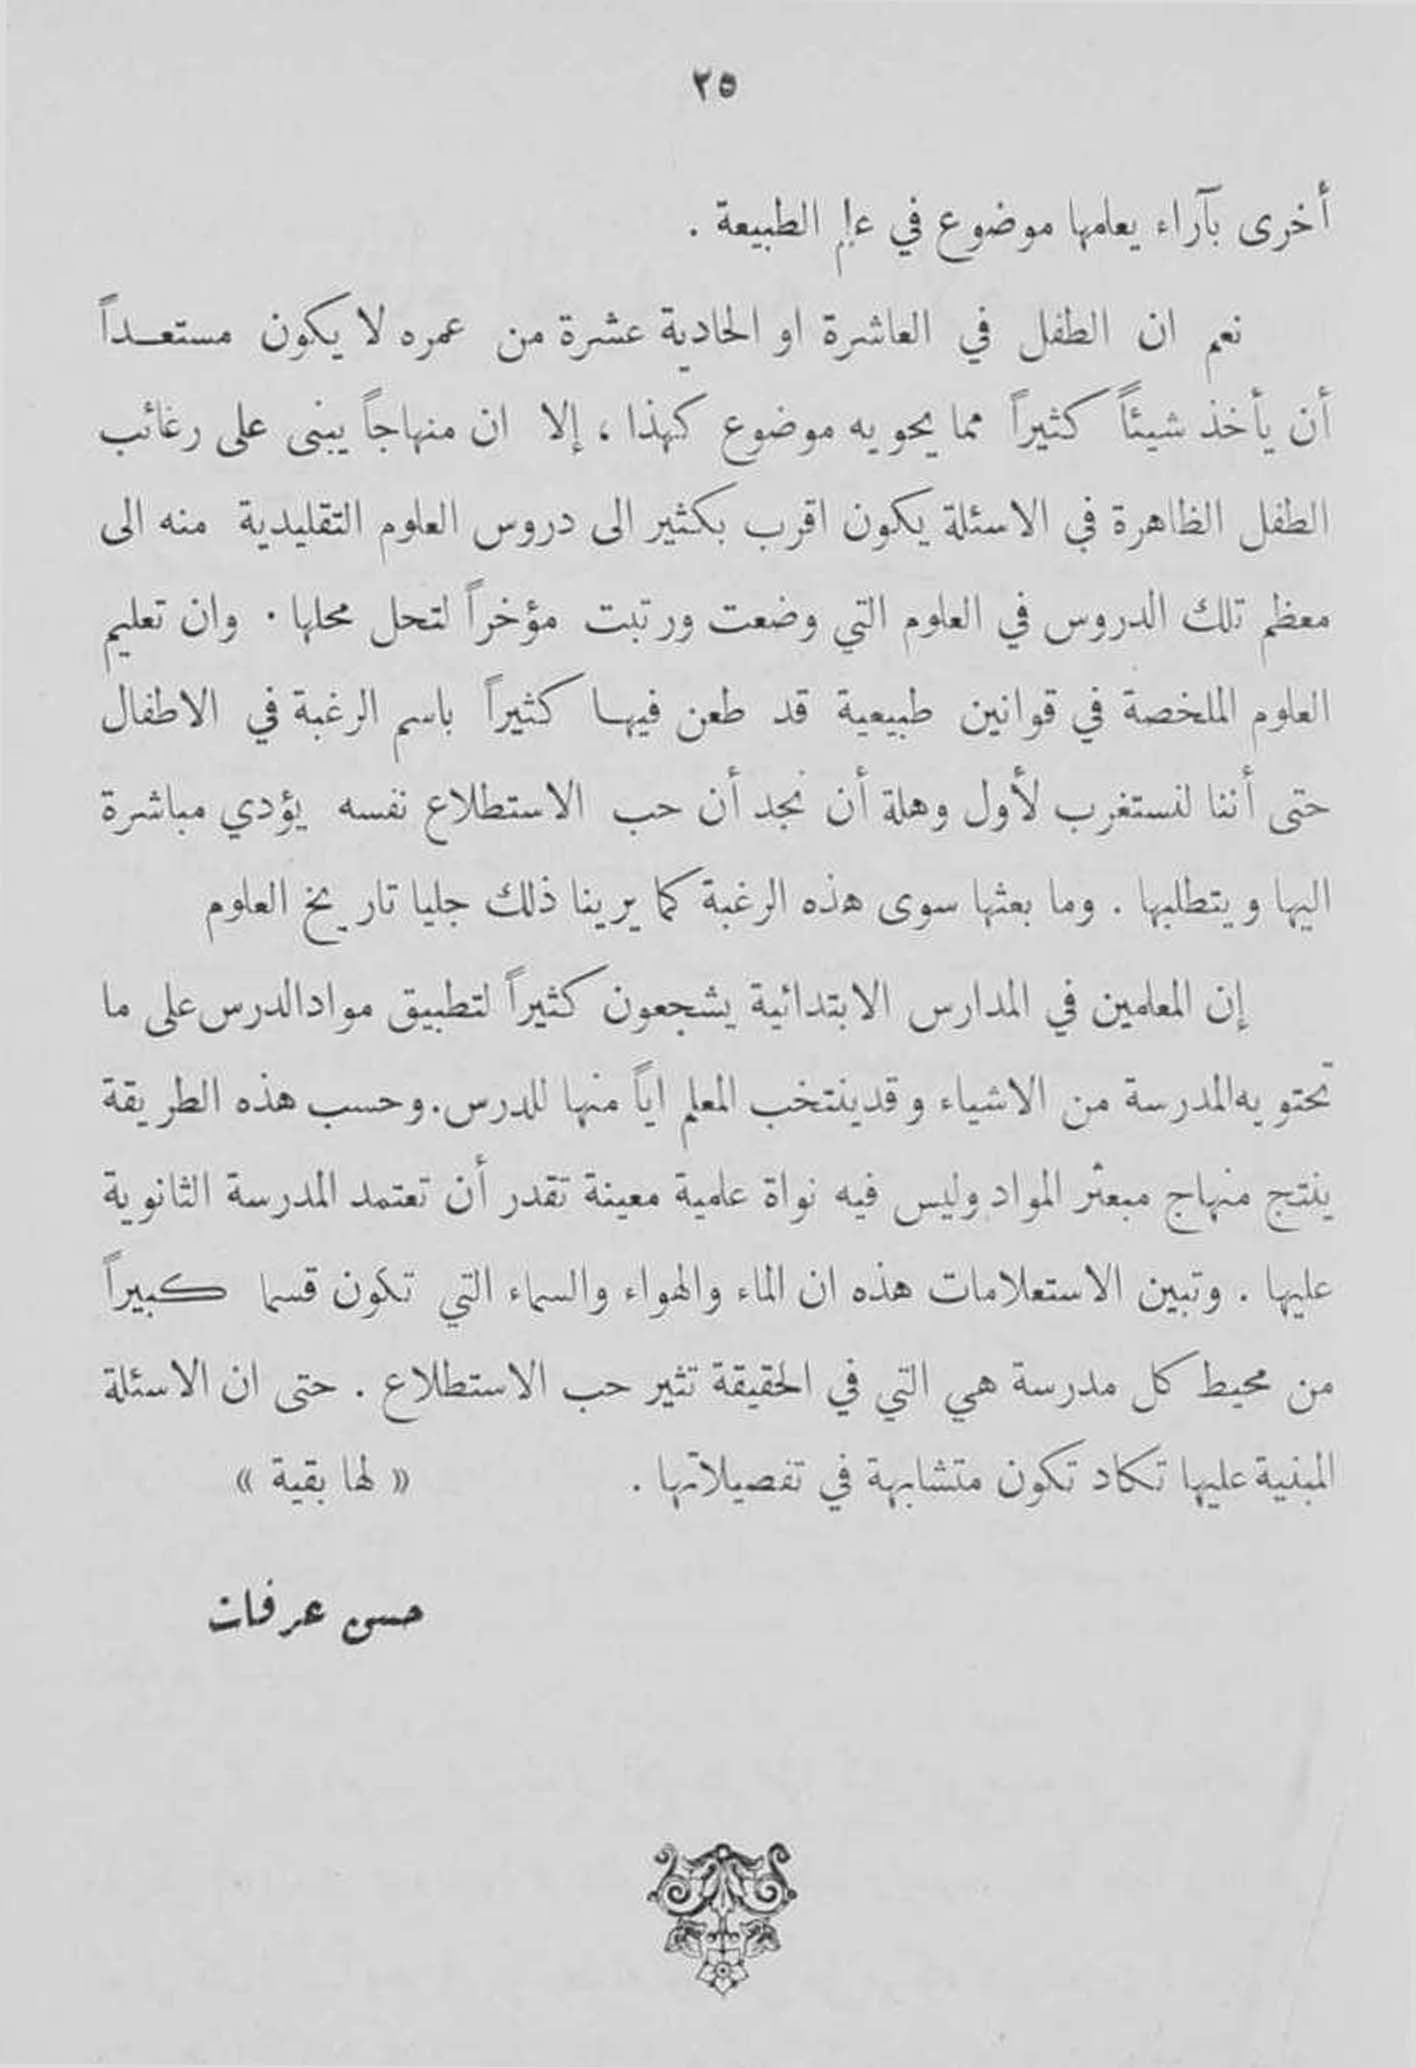 ٢٥
أخرى بآراء يعلمها موضوع في علم الطبيعة .
نعم ان الطفل في العاشرة او الحادية عشرة من عمره لا يكون مستعداً
أن يأخذ شيئاً كثيراً مما يحويه موضوع كهذا ، إلا ان منهاجاً يبنى على رغائب
الطفل الظاهرة في الاسئلة يكون اقرب بكثير الى دروس العلوم التقليدية منه الى
معظم تلك الدروس في العلوم التي وضعت ورتبت مؤخراً لتحل محلها . وان تعليم
العلوم الملخصة في قوانين طبيعية قد طعن فيها كثيراً باسم الرغبة في الاطفال
حتى أننا لنستغرب لأول وهلة أن نجد أن حب الاستطلاع نفسه يؤدي مباشرة
اليها ويتطلبها . وما بعثها سوى هذه الرغبة كما يرينا ذلك جليا تاريخ العلوم
إن المعلمين في المدارس الابتدائية يشجعون كثيراً لتطبيق مواد الدرس على ما
تحتويه المدرسة من الاشياء وقد ينتخب المعلم اياً منها للدرس . وحسب هذه الطريقة
ينتج منهاج مبعثر المواد وليس فيه نواة علمية معينة تقدر أن تعتمد المدرسة الثانوية
عليها . وتبين الاستعلامات هذه ان الماء والهواء والسماء التي تكون قسما كبيراً
من محيط كل مدرسة هي التي في الحقيقة تثير حب الاستطلاع . حتى ان الاسئلة
المبنية عليها تكاد تكون متشابهة في تفصيلاتها . « لها بقية »
حسن عرفات